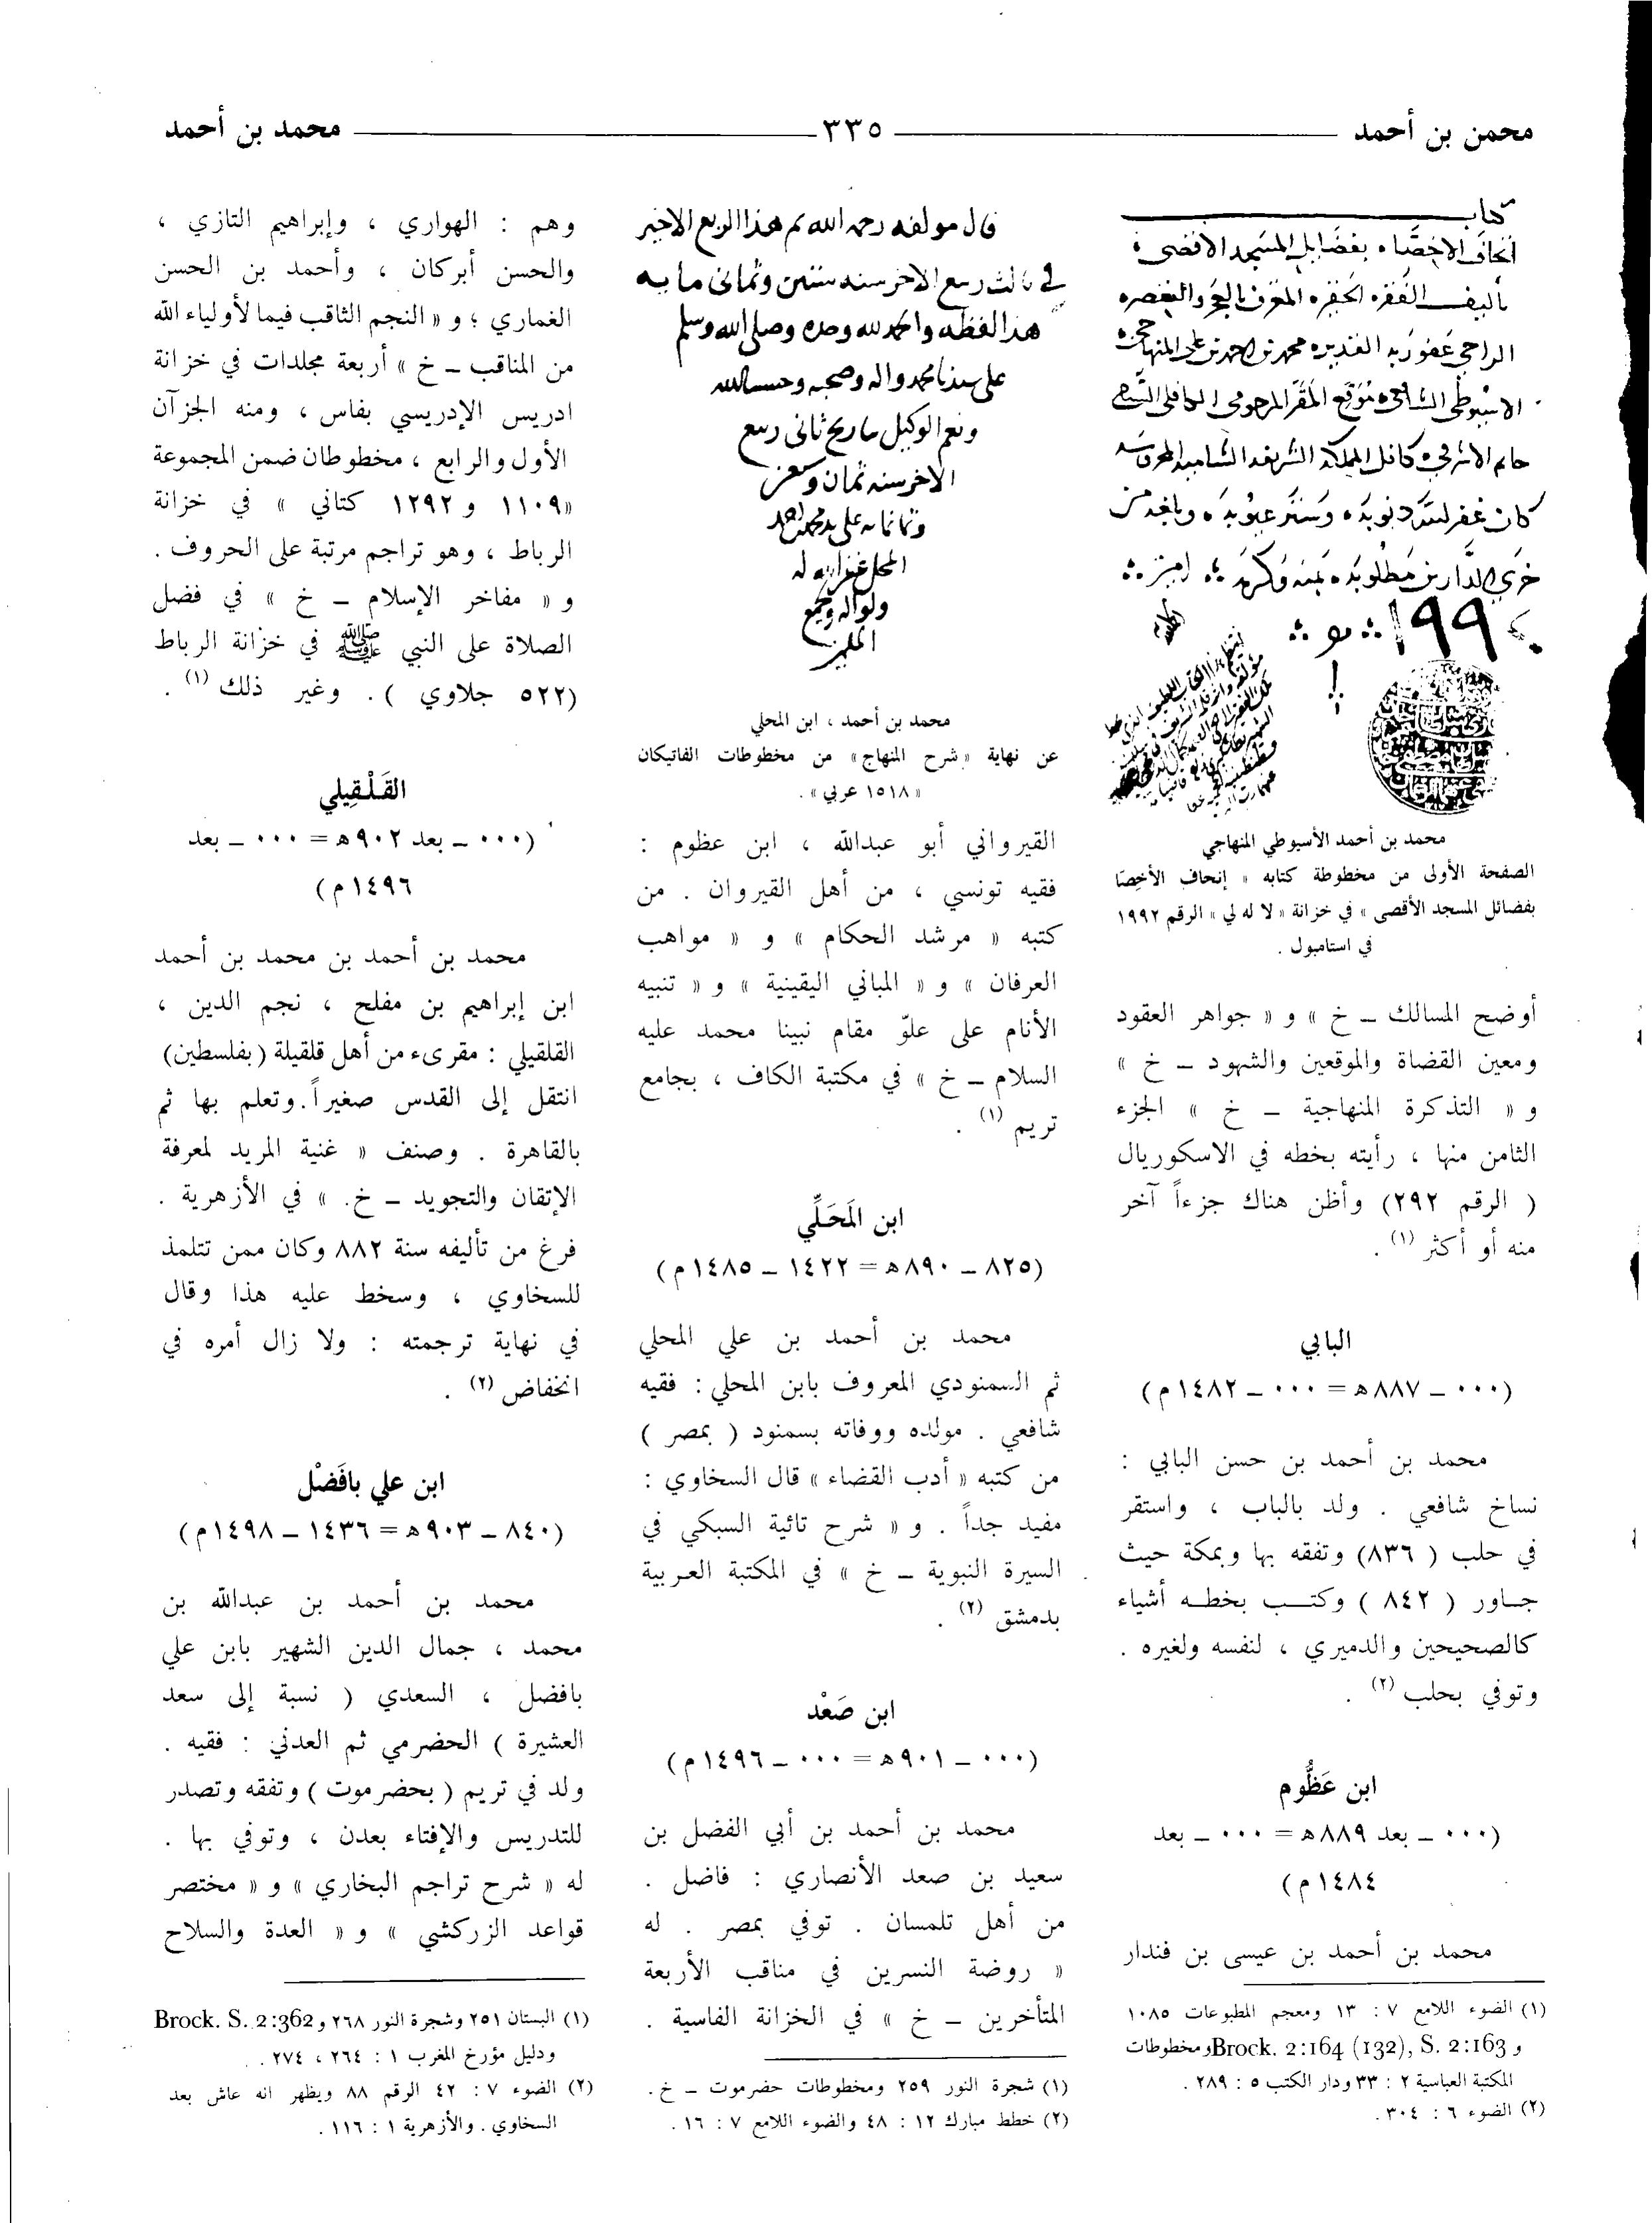 محمن بن أحمد
٣٣٥
محمد بن أحمد
كتاب
اتحاف الاخصا بفضايل المسجد الاقصى
تأليف الفقير الحقير المعترف بالعجز والتقصير
الراجي عفو ربه القدير محمد بن احمد بن علي المنهاجي
الاسيوطي الشافعي موقع المقر المرحومي الكافلي
كافل المملكة الشريفة الشامية المحروسة
كان غفر الله ذنوبه وستر عيوبه وبلغه من
خيري الدارين مطلوبه بمنه وكرمه امين
١٩٩
محمد بن أحمد الأسيوطي المنهاجي
الصفحة الأولى من مخطوطة كتابه « إتحاف الأخِصّا
بفضائل المسجد الأقصى » في خزانة « لا له لي » الرقم ١٩٩٢
في استامبول .
أوضح المسالك ــ خ » و « جواهر العقود
ومعين القضاة والموقعين والشهود ــ خ »
و « التذكرة المنهاجية ــ خ » الجزء
الثامن منها ، رأيته بخطه في الاسكوريال
( الرقم ٢٩٢) وأظن هناك جزءاً آخر
منه أو أكثر (١) .
البابي
(٠٠٠ ــ ٨٨٧هـ = ٠٠٠ ــ ١٤٨٢ م)
محمد بن أحمد بن حسن البابي :
نساخ شافعي . ولد بالباب ، واستقر
في حلب ( ٨٣٦) وتفقه بها وبمكة حيث
جـاور ( ٨٤٢ ) وكتـب بخطـه أشياء
كالصحيحين والدميري ، لنفسه ولغيره .
وتوفي بحلب (٢) .
ابن عَظُّوم
(٠٠٠ ــ بعد ٨٨٩هـ = ٠٠٠ ــ بعد
١٤٨٤ م)
محمد بن أحمد بن عيسى بن فندار
(١) الضوء اللامع ٧ : ١٣ ومعجم المطبوعات ١٠٨٥
و Brock. 2:164 (132), S. 2:163 ومخطوطات
المكتبة العباسية ٢ : ٣٣ ودار الكتب ٥ : ٢٨٩ .
(٢) الضوء ٦ : ٣٠٤ .
قال مولفه رحمه الله تم هذا الربع الاخير
في ثالث ربيع الاخر سنه ستين وثماني مايه
هذا لفظه والحمد لله وحده وصلى الله وسلم
على سيدنا محمد واله وصحبه وحسبنا الله
ونعم الوكيل بتاريخ ثاني ربيع
الاخر سنه ثمان
وثمانمايه على يد محمد بن احمد
المحلي غفر الله له
ولوالديه ولجميع
المسلمين
محمد بن أحمد ، ابن المحلي
عن نهاية «شرح المنهاج» من مخطوطات الفاتيكان
«١٥١٨ عربي» .
القيرواني أبو عبدالله ، ابن عظوم :
فقيه تونسي ، من أهل القيروان . من
كتبه « مرشد الحكام » و « مواهب
العرفان » و « المباني اليقينية » و « تنبيه
الأنام على علوّ مقام نبينا محمد عليه
السلام ــ خ » في مكتبة الكاف ، بجامع
تريم (١) .
ابن المَحَلِّي
(٨٢٥ ــ ٨٩٠هـ = ١٤٢٢ ــ ١٤٨٥ م)
محمد بن أحمد بن علي المحلي
ثم السمنودي المعروف بابن المحلي : فقيه
شافعي . مولده ووفاته بسمنود ( بمصر )
من كتبه « أدب القضاء » قال السخاوي :
مفيد جداً . و « شرح تائية السبكي في
السيرة النبوية ــ خ » في المكتبة العربية
بدمشق (٢) .
ابن صَعْد
(٠٠٠ ــ ٩٠١هـ = ٠٠٠ ــ ١٤٩٦ م)
محمد بن أحمد بن أبي الفضل بن
سعيد بن صعد الأنصاري : فاضل .
من أهل تلمسان . توفي بمصر . له
« روضة النسرين في مناقب الأربعة
المتأخرين ــ خ » في الخزانة الفاسية .
(١) شجرة النور ٢٥٩ ومخطوطات حضرموت ــ خ .
(٢) خطط مبارك ١٢ : ٤٨ والضوء اللامع ٧ : ١٦ .
وهم : الهواري ، وإبراهيم التازي ،
والحسن أبركان ، وأحمد بن الحسن
الغماري ؛ و « النجم الثاقب فيما لأولياء الله
من المناقب ــ خ » أربعة مجلدات في خزانة
ادريس الإدريسي بفاس ، ومنه الجزآن
الأول والرابع ، مخطوطان ضمن المجموعة
«١١٠٩ و ١٢٩٢ كتاني » في خزانة
الرباط ، وهو تراجم مرتبة على الحروف .
و « مفاخر الإسلام ــ خ » في فضل
الصلاة على النبي ﷺ في خزانة الرباط
(٥٢٢ جلاوي ) . وغير ذلك (١) .
القَلْقِيلي
(٠٠٠ ــ بعد ٩٠٢هـ = ٠٠٠ ــ بعد
١٤٩٦ م)
محمد بن أحمد بن محمد بن أحمد
ابن إبراهيم بن مفلح ، نجم الدين ،
القلقيلي : مقرىء من أهل قلقيلة (بفلسطين)
انتقل إلى القدس صغيراً . وتعلم بها ثم
بالقاهرة . وصنف « غنية المريد لمعرفة
الإتقان والتجويد ــ خ. » في الأزهرية .
فرغ من تأليفه سنة ٨٨٢ وكان ممن تتلمذ
للسخاوي ، وسخط عليه هذا وقال
في نهاية ترجمته : ولا زال أمره في
انخفاض (٢) .
ابن علي بافَضْل
(٨٤٠ ــ ٩٠٣هـ = ١٤٣٦ ــ ١٤٩٨م)
محمد بن أحمد بن عبدالله بن
محمد ، جمال الدين الشهير بابن علي
بافضل ، السعدي ( نسبة إلى سعد
العشيرة ) الحضرمي ثم العدني : فقيه .
ولد في تريم ( بحضرموت ) وتفقه وتصدر
للتدريس والإفتاء بعدن ، وتوفي بها .
له « شرح تراجم البخاري » و « مختصر
قواعد الزركشي » و « العدة والسلاح
(١) البستان ٢٥١ وشجرة النور ٢٦٨ و Brock. S. 2:362
ودليل مؤرخ المغرب ١ : ٢٦٤ ، ٢٧٤ .
(٢) الضوء ٧ : ٤٢ الرقم ٨٨ ويظهر انه عاش بعد
السخاوي . والأزهرية ١ : ١١٦ .